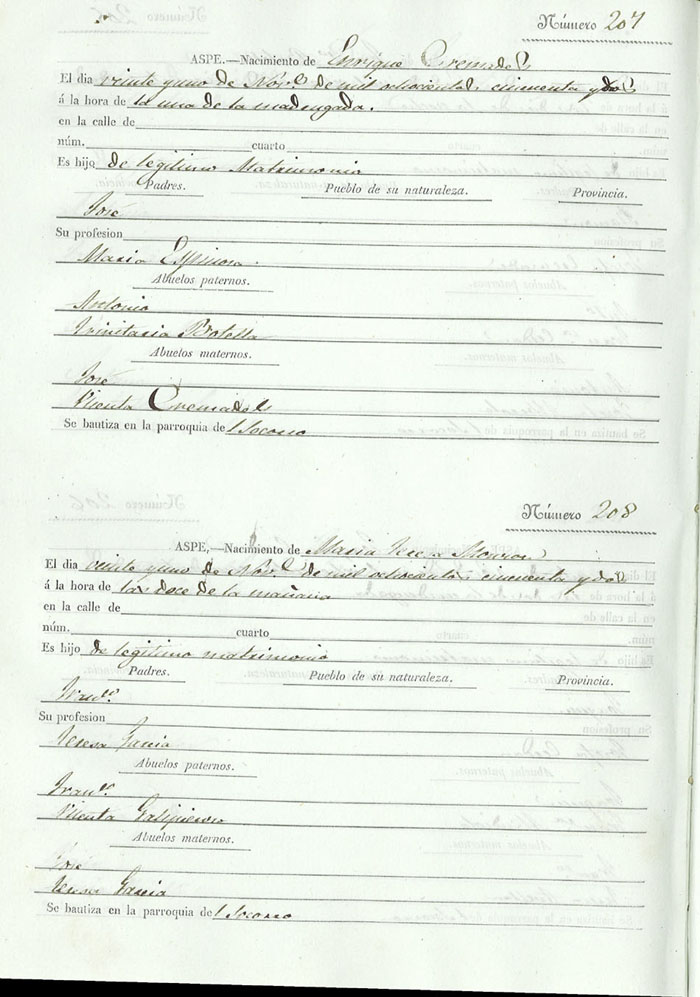 Número 207
ASPE.—Nacimiento de Enrique Cremades
El dia veinte y uno de Nov.e de mil ochocientos cincuenta y dos
á la hora de la una de la madrugada.
en la calle de
núm. cuarto
Es hijo de legitimo Matrimonio
Padres. Pueblo de su naturaleza. Provincia.
José
Su profesion
Maria Espinosa
Abuelos paternos.
Antonio
Trinitaria Botella
Abuelos maternos.
José
Vicenta Cremades
Se bautiza en la parroquia del Socorro
Número 208
ASPE,—Nacimiento de Maria Teresa
El dia veinte y uno de Nov.e de mil ochocientos cincuenta y dos
á la hora de las doce de la mañana
en la calle de
núm. cuarto
Es hijo de legitimo matrimonio
Padres. Pueblo de su naturaleza. Provincia.
Fran.co
Su profesion
Teresa Garcia
Abuelos paternos.
Fran.co
Vicenta
Abuelos maternos.
José
Teresa Garcia
Se bautiza en la parroquia del Socorro